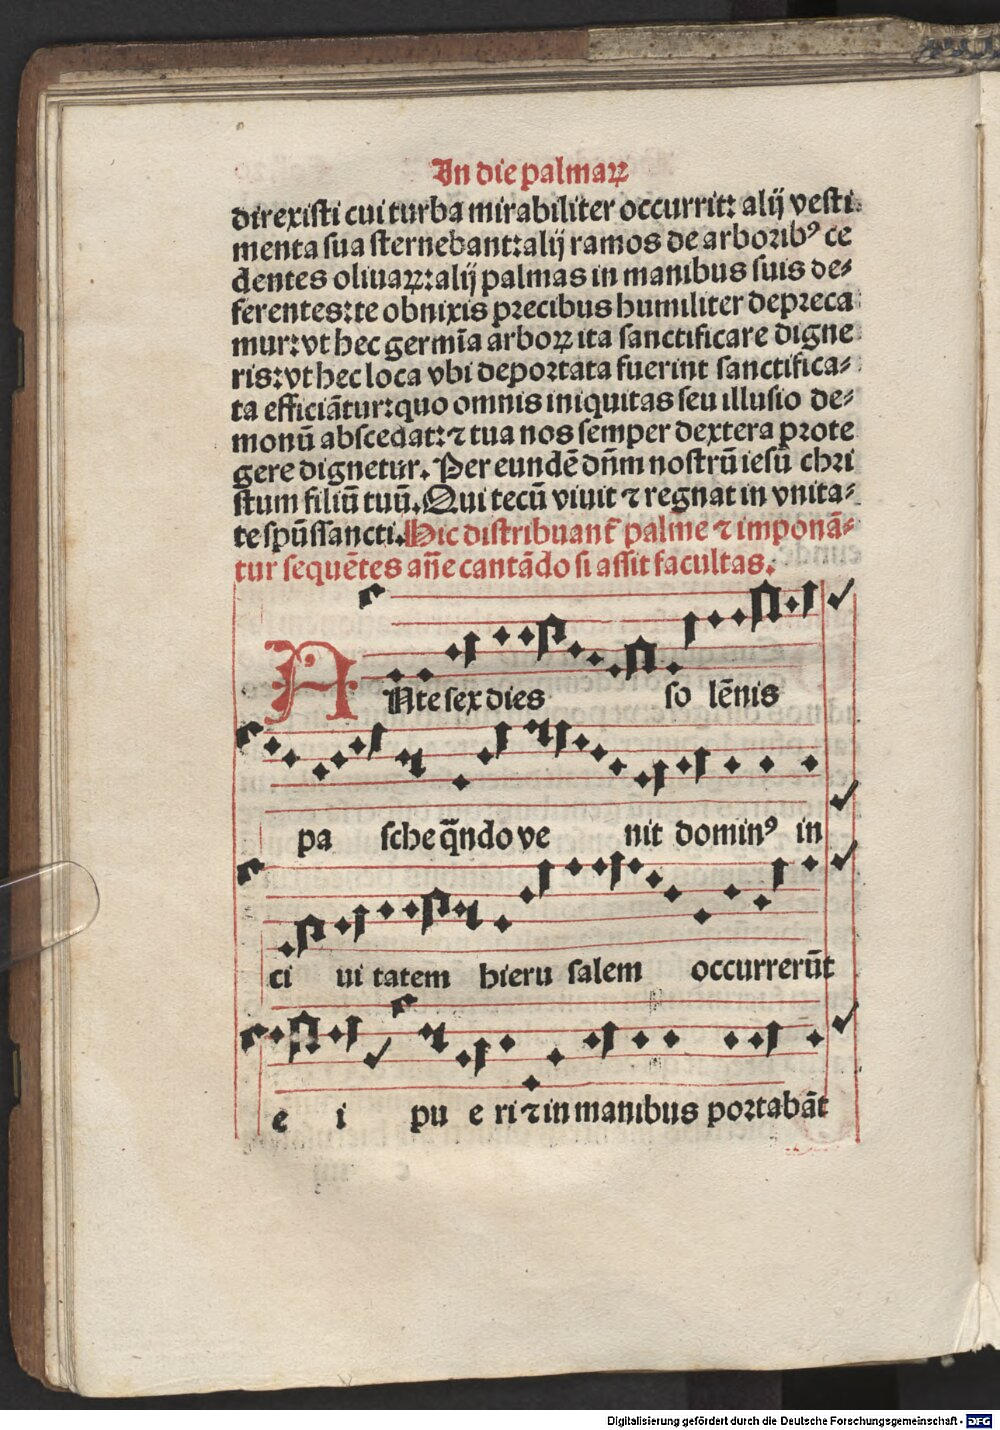 In die palmaꝝ
direxisti cui turba mirabiliter occurrit: alij vesti
menta sua sternebant: alij ramos de arboribꝰ ce
dentes oliuaꝝ: alij palmas in manibus suis de⸗
ferentes: te obnixis precibus humiliter depreca
mur: vt hec germīa arboꝝ ita sanctificare digne
ris: vt hec loca vbi deportata fuerint sanctifica⸗
ta efficiātur: quo omnis iniquitas seu illusio de⸗
monū abscedat: ⁊ tua nos semper dextera prote
gere dignetur. Per eundē dn̄m nostrū iesū chri
stum filiū tuū. Qui tecū viuit ⁊ regnat in vnita⸗
te spūssancti. Hic distribuant̄ palme ⁊ imponā⸗
tur sequētes an̄e cantādo si assit facultas.
ANte sex dies so lēnis
pa sche qn̄do ve nit dominꝰ in
ci ui tatem hieru salem occurrerūt
e i pu e ri ⁊ in manibus portabāt
Digitalisierung gefördert durch die Deutsche Forschungsgemeinschaft - DFG